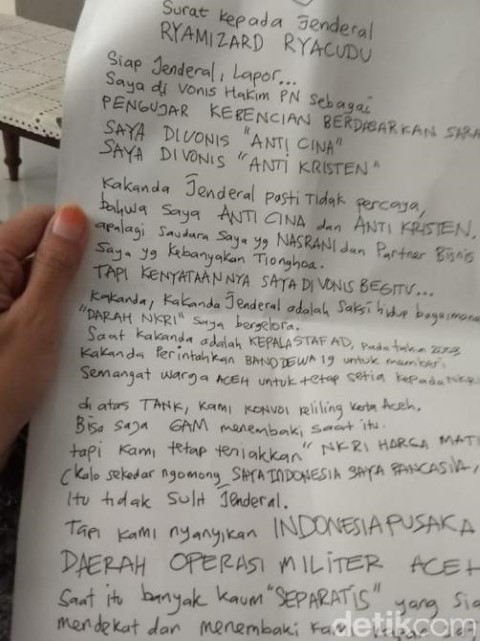 Surat kepada Jenderal
RYAMIZARD RYACUDU
Siap Jenderal, Lapor...
Saya di vonis Hakim PN sebagai
PENGUJAR KEBENCIAN BERDASARKAN SARA
SAYA DIVONIS "ANTI CINA"
SAYA DIVONIS "ANTI KRISTEN"
Kakanda Jenderal pasti tidak percaya,
bahwa saya ANTI CINA dan ANTI KRISTEN.
apalagi saudara saya yg NASRANI dan Partner Bisnis
saya yg kebanyakan Tionghoa.
TAPI KENYATAANNYA SAYA DIVONIS BEGITU...
Kakanda, Kakanda Jenderal adalah saksi hidup bagaimana
"DARAH NKRI" saya bergelora.
Saat kakanda adalah KEPALA STAF AD, pada tahun 2003
Kakanda Perintahkan BAND DEWA 19 untuk
Semangat warga ACEH untuk tetap setia kepada NKRI
di atas TANK, kami KONVOI keliling kota Aceh.
Bisa saja GAM menembaki saat itu.
tapi kami tetap teriakkan "NKRI HARGA MATI
(kalo sekedar ngomong SAYA INDONESIA SAYA PANCASILA,
itu tidak sulit Jenderal.
Tapi kami nyanyikan INDONESIA PUSAKA
DAERAH OPERASI MILITER ACEH
Saat itu banyak kaum "SEPARATIS" yang sia
mendekat dan menembaki kami
detikcom